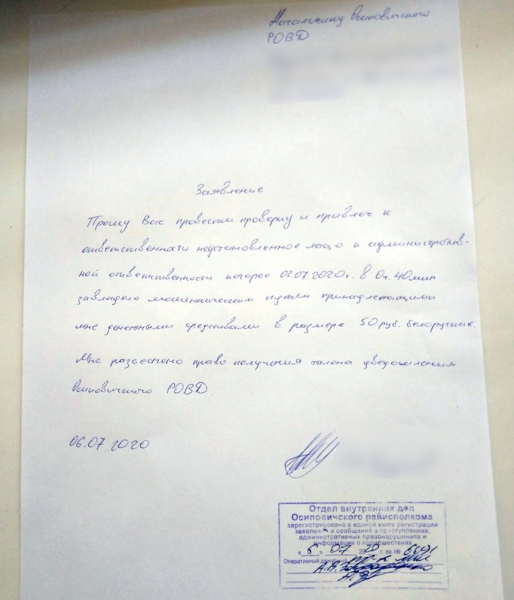 Начальнику Осиповичского
РОВД
Заявление
Прошу Вас провести проверку и привлеч к
ответственности неустановленное лицо к административ-
ной ответственности которое 02.07.2020г. в 0ч. 40мин
завладело мошенническим путём принадлежащими
мне денежными средствами в размере 50 руб. белорусских.
Мне разъяснено право получения талона уведомления
Осиповичского РОВД.
06.07.2020
Отдел внутренних дел
Осиповичского райисполкома
зарегистрировано в единой книге регистрации
заявлений и сообщений о преступлениях,
административных правонарушениях и
информации о происшествиях
« 6 » 07 20 г. за №
Оперативный